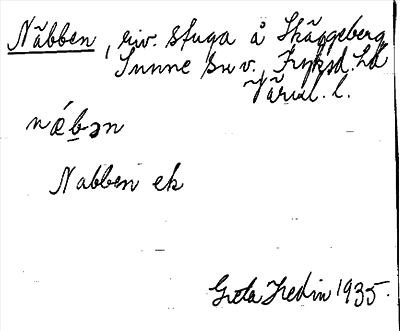 Näbben, riv. stuga å Skäggeberg
Sunne sn v., Fryksd. hd
Värml. l.
nǽbən
Nabben ek
Greta Hedin 1935.